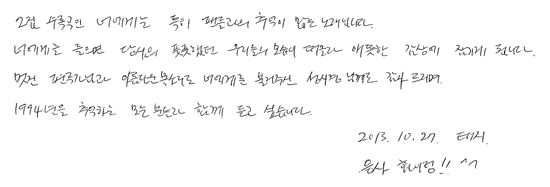 2집 수록곡인 너에게는 특히 팬들과의 추억이 많은 노래입니다.
너에게를 들으면 당시의 풋풋했던 우리들의 모습이 떠올라 애틋한 감상에 잠기게 됩니다.
멋진 편곡과 아름다운 목소리로 너에게를 불러주신 성시경 님께도 감사 드리며,
1994년을 추억하는 모든 분들과 함께 듣고 싶습니다.
2013. 10. 27. 태지.